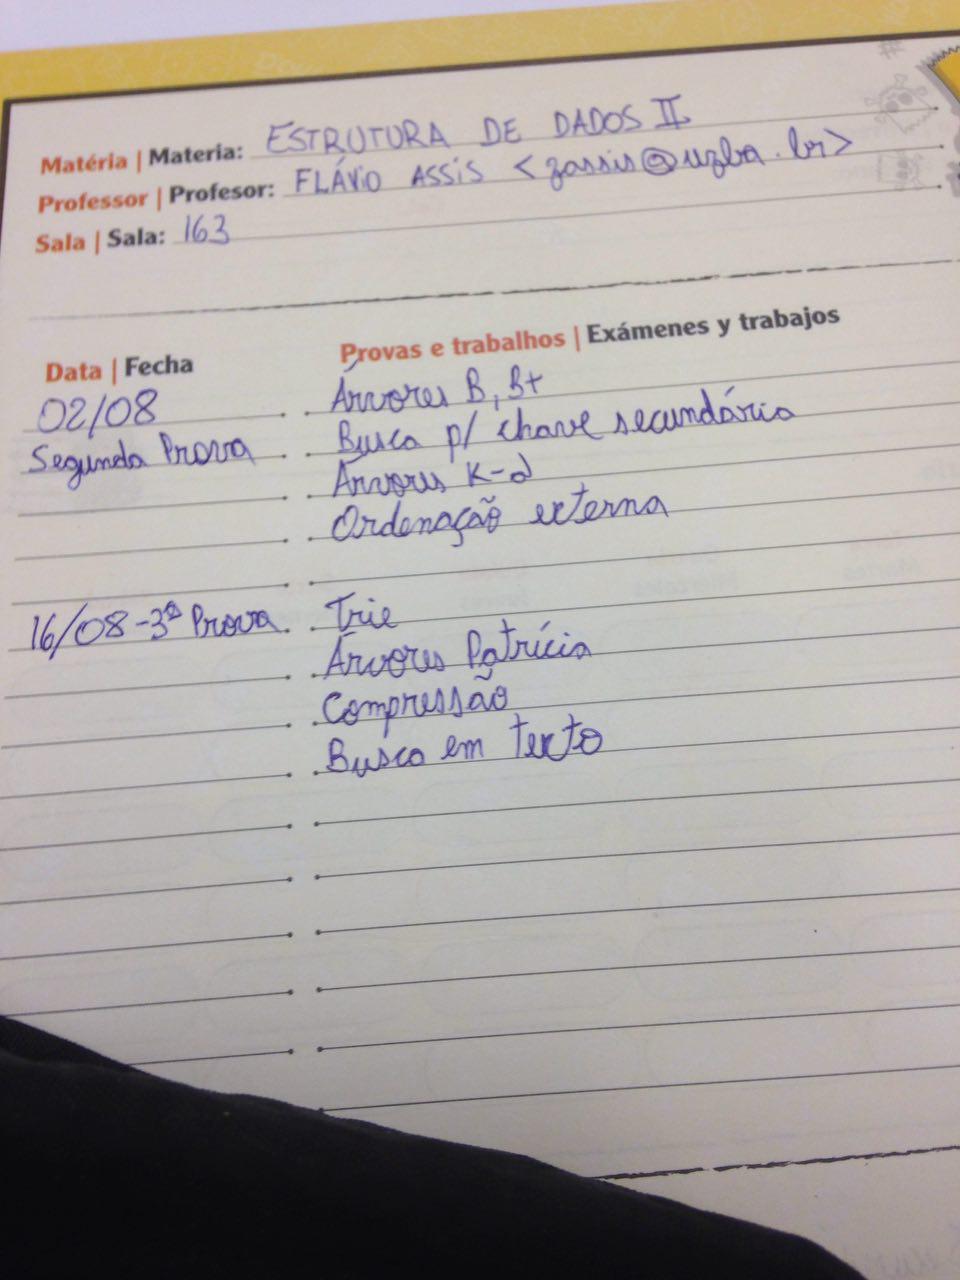 Matéria | Materia: ESTRUTURA DE DADOS II
Professor | Profesor: FLÁVIO ASSIS <fassis@ufba.br>
Sala | Sala: 163
Data | Fecha
Provas e trabalhos | Exámenes y trabajos
02/08
Árvores B, B+
Segunda Prova
Busca p/ chave secundária
Árvores K-d
Ordenação externa
16/08 - 3ª Prova
Trie
Árvores Patrícia
Compressão
Busca em texto